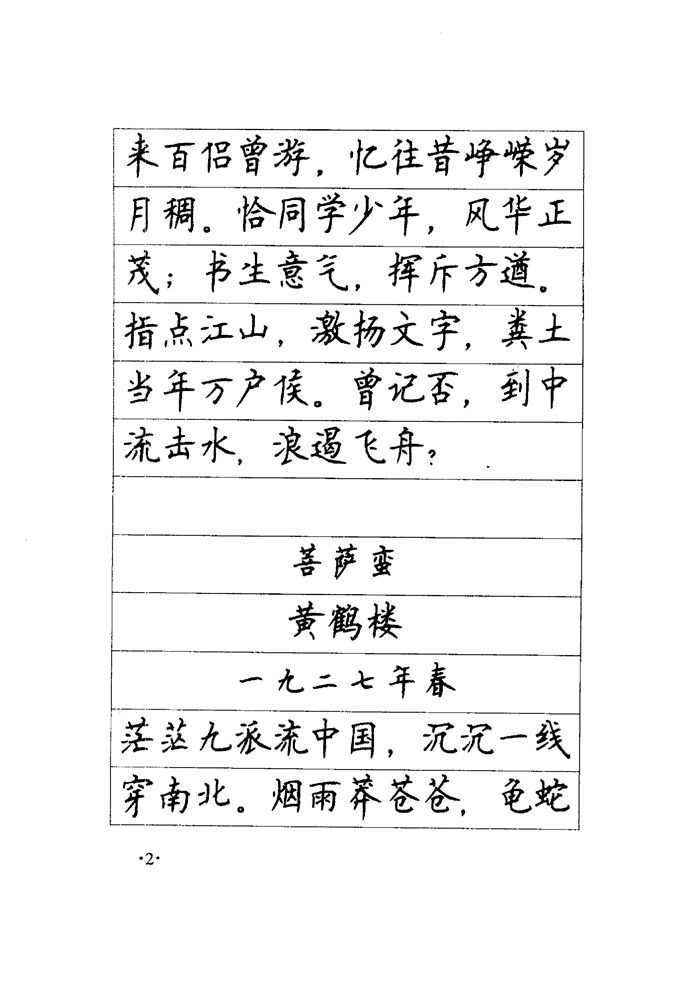 来百侣曾游，忆往昔峥嵘岁
月稠。恰同学少年，风华正
茂；书生意气，挥斥方遒。
指点江山，激扬文字，粪土
当年万户侯。曾记否，到中
流击水，浪遏飞舟？
菩萨蛮
黄鹤楼
一九二七年春
茫茫九派流中国，沉沉一线
穿南北。烟雨莽苍苍，龟蛇
·2·